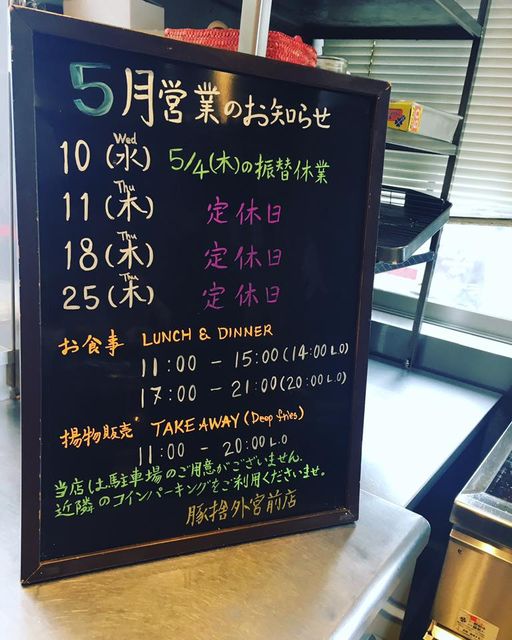 5月営業のお知らせ
Wed
10(水) 5/4(木)の振替休業
Thu
11(木) 定休日
Thu
18(木) 定休日
Thu
25(木) 定休日
お食事 LUNCH & DINNER
11:00 - 15:00(14:00 L.O)
17:00 - 21:00(20:00 L.O)
揚物販売 TAKE AWAY (Deep fries)
11:00 - 20:00 L.O
当店は駐車場のご用意がございません。
近隣のコインパーキングをご利用くださいませ。
豚捨外宮前店